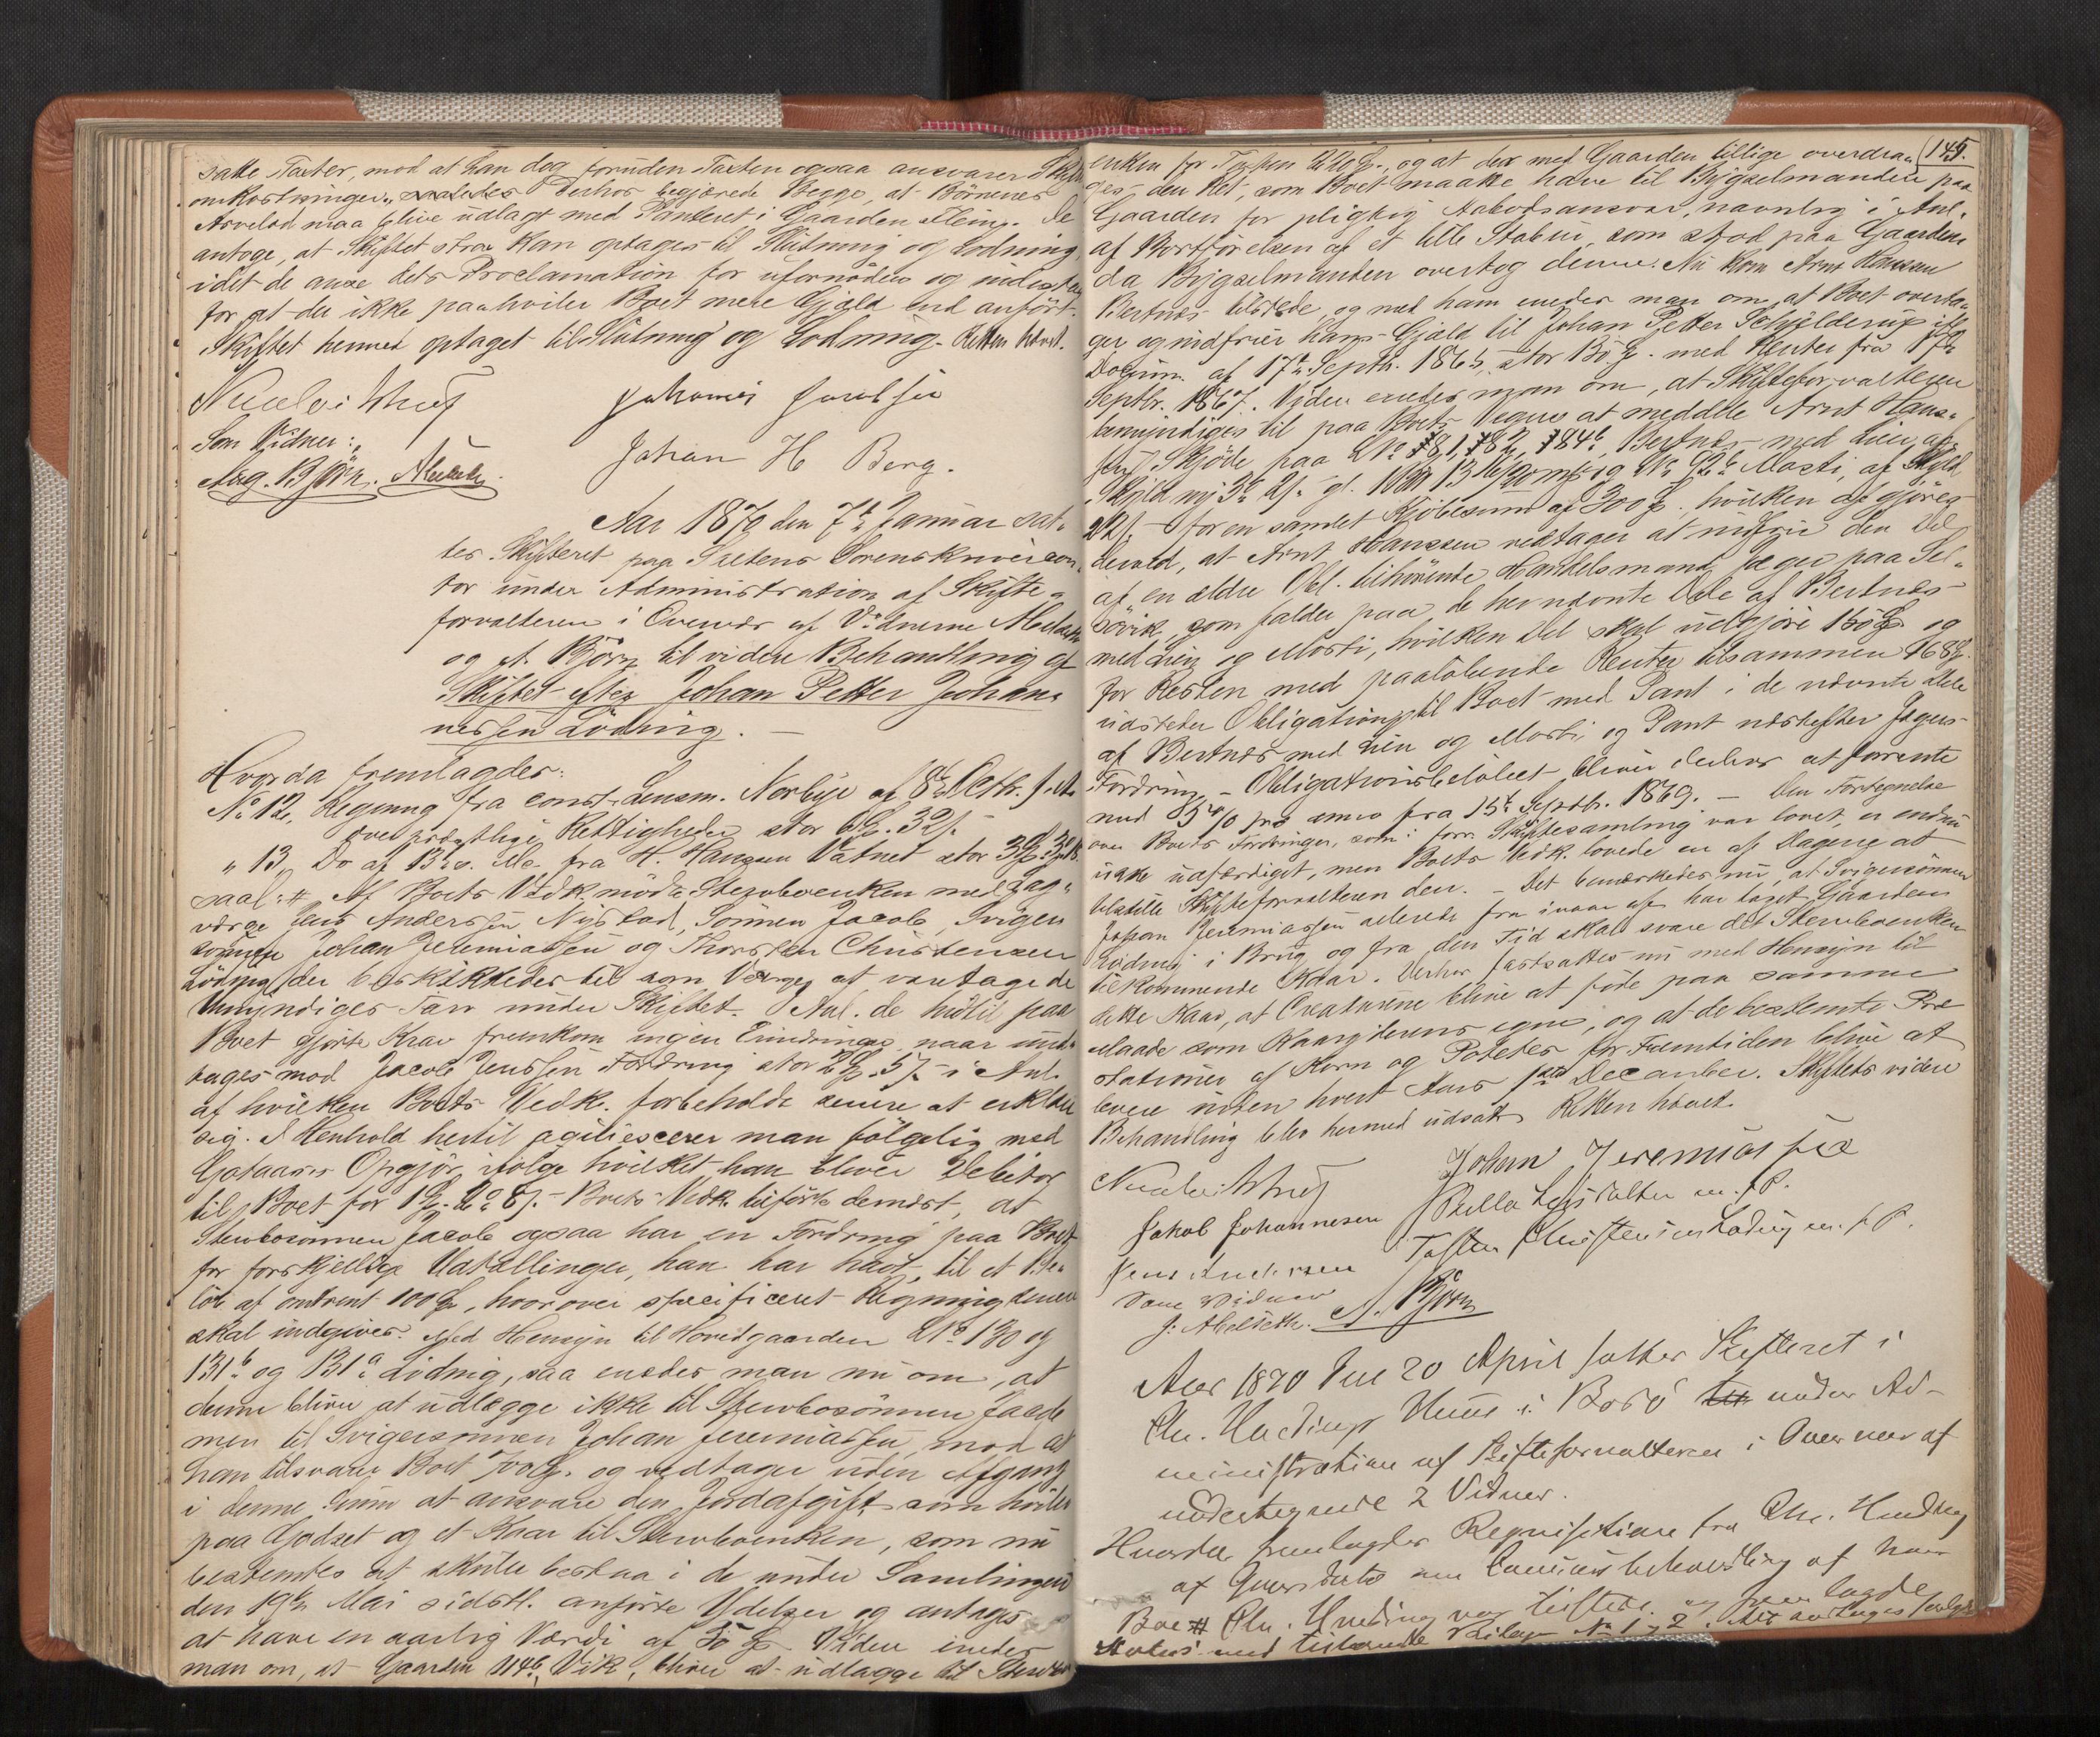 satte Taxter, mod at han dog foruden Taxten ogsaa ansvarer Skifte
omkostninger, Derhos begjærede Begge, at Børnenes
Arvelod maa blive udlagt med Panteret i Gaarden Klein. De
antoge, at Skiftet strax kan optages til Slutning og Lodning
idet de ansee dets Proclamation for ufornöden og indestaa
for at der ikke paahviler Boet mere Gjæld end anført.
Skiftet hermed optaget til Slutning og Lodning. Retten hævet.
Johannes Jacobsen
Som Vidner:
Johan H Berg.
Aug. Björn.
Aar 1870 den 7de Januar sat-
tes Skifteret paa Saltens Sorenskrivercon-
tor under Administration af Skifte-
forvalteren i Overvær af Vidnerne
og A. Björn til videre Behandling af
Skiftet efter Johan Petter Johan-
nessen Löding. —
Hvorda fremlagdes:
No 12, Regning fra const. Lensm. Norbye af 8de Octbr. f. A.
over Rettigheder, stor 6 32
" 13, Do af 13de s. M. fra H. Hanssen Vatnet stor
saal: # Af Boets Vedk. mødte Sterbboenken med Lag-
værge Jens Anderssen Nystad, Sönnen Jacob, Sviger
sönnen Johan Jeremiassen og Thorsten Christensen
Löding der beskikkedes til som Værge at varetage de
Umyndiges Tarv under Skiftet. I Anl. de hidtil paa
Boet gjorte Krav fremkom ingen Erindringer naar und-
tages mod Jacob Jenssen Fordring stor 2 57 i Anl.
af hvilken Boets Vedk. forbeholdt senere at erklære
sig. I Henhold hertil agiliescerer man fölgelig med
Gotaases Opgjör, ifölge hvilket han bliver Debitor
til Boet for 1 8 - Boets Vedk. tilförte dernæst, at
Sterbosönnen Jacob ogsaa har en Fordring paa Boet
for forskjellige Udtællinger, han har havt, til et Be-
löb af omtrent 100, hvorover specificeret Regning senere
skal indgives. Med Hensyn til Hovedgaarden No 130 og
131b og 131a Löding, saa enedes man nu om, at
denne bliver at udlægge ikke til Sterbosönnen Jacob
men til Svigersönnen Johan Jeremiassen, mod at
han tilsvarer Boet 700 og vedtager uden Afgang
i denne Sum at ansvare den Jordafgift, som hviler
paa Godset og et Kaar til Sterboenken, som nu
bestemtes at skulle bestaa i de under Samlingen
den 19de Mai sidstl. anförte Ydelser og antages
at have en aarlig Værdi af 50 Videre enedes
man om, at Gaarden 114b, Vik, bliver at udlægge til Sterbo
145.
enken for Taxten 220, og at der med Gaarden tillige overdra-
ges den Ret, som Boet maatte have til Bygselmanden paa
Gaarden for pligtig Aabodsansvar, navnlig i Anl.
af Bortförelsen af et lille Stabur, som stod paa Gaarden
da Bygselmanden overtog denne. Nu kom Arnt Hanssen
Bertnes tilstede, og med ham enedes man om, at Boet overta-
ger og indfrier hans Gjæld til Johan Petter Schjelderup ifl.
Docum. af 17de Septbr. 1865, stor 130 med Renter fra 17de
Septbr. 1867. Videre enedes man om, at Skifteforvalteren
bemyndiges til paa Boets Vegne at meddele Arnt Hans-
sen Skjöde paa No 781, 782, 784b, Bertnes med Lien af
Skyld ny 3 gl. og No Mosti, af Skyld
for en samlet Kjöbesum af 300, hvilken afgjöres
derved, at Arnt Hanssen vedtager at indfrie den Del
af en ældre Obl. tilhörende Handelsmand Jæger paa Sel-
sövik, som falder paa de her nævnte Dele af Bertnes
med Lien og Mosti, hvilken Del skal udgjöre og
for Resten med paalöbende Renter tilsammen 168
udsteder Obligation til Boet med Pant i de nævnte Dele
af Bertnes med Lien og Mosti og Pant næstefter Jægers
Fordring. - Obligationsbelöbet bliver derhos at forrente
med 5 % pro anno fra 15de Septbr. 1869. - Den Fortegnelse
over Boets Fordringer, som i forr. Skiftesamling var lovet, er endnu
ikke udfærdiget, men Boets Vedk. lovede en af Dagene at
tilstille Skifteforvalteren den. - Det bemærkedes nu, at Svigersönnen
Johan Jeremiassen allerede fra ivaar af har taget Gaarden
Löding i Brug og fra den Tid skal svare det Sterboenken
tilkommende Kaar. Derhos fastsattes nu med Hensyn til
dette Kaar, at Creaturene blive at föde paa samme
Maade som Kaargiverens egne, og at de bestemte Præ
stationer af Korn og Poteter for Fremtiden blive at
levere inden hvert Aars 1ste December. Skiftets videre
Behandling blev hermed udsat. Retten hævet.
Johan Jeremiassen
Jakob Johannesen
Pella Larsdatter m. f. P.
Jens Andersen
Tosten Christensen Löding m. f. P.
Som Vidner
J. Mælseth. A. Björn
Aar 1870 den 20 April sattes Skifteret i
Chr. Hus i Bodö under Ad-
ministration af Skifteforvalteren i Overvær af
undertegnede 2 Vidner.
Hvorda fremlagdes Requisition fra Chr.
af Gaars Dato om Concursbehandling af hans
Boe # Chr. var tilstede og fremlagde
Status med tilhörende Bilage No 1 og 2.